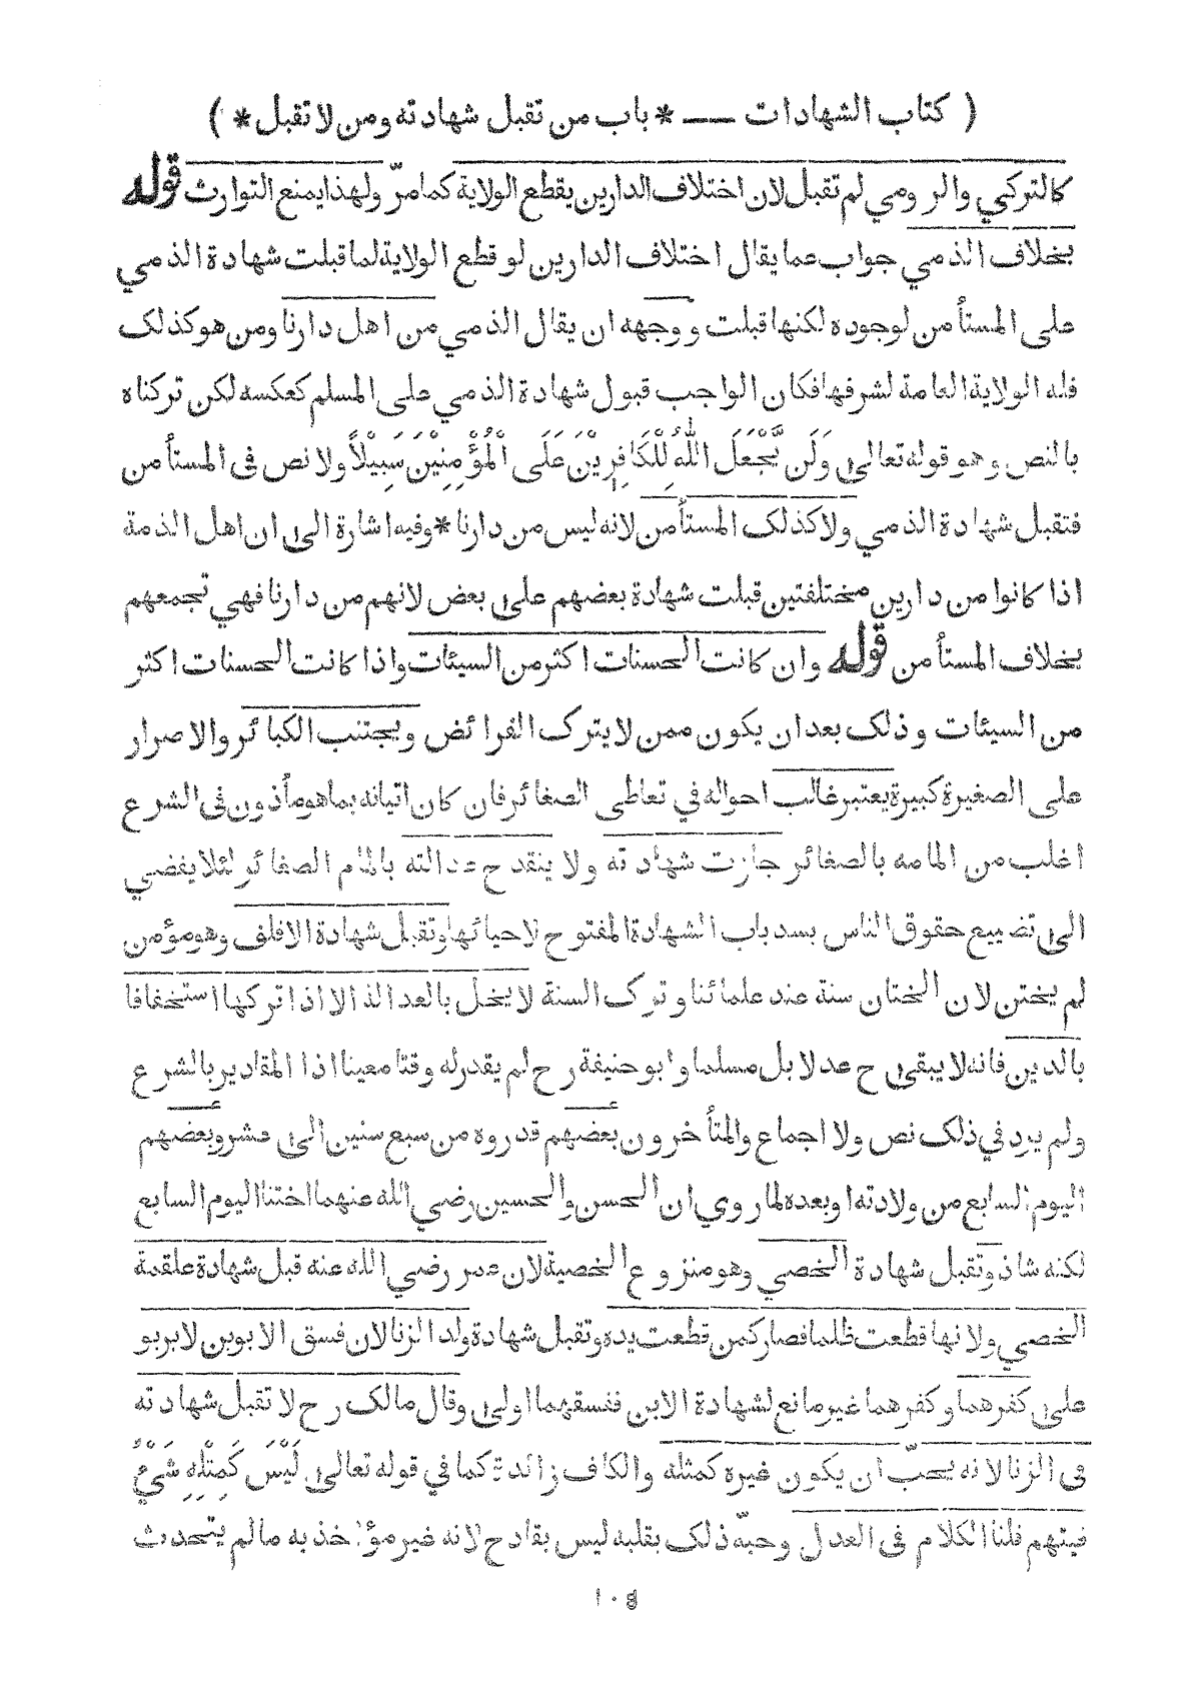 ( كتاب الشهادات — * باب من تقبل شهادته ومن لا تقبل * )
كالتركي والرومي لم تقبل لان اختلاف الدارين يقطع الولاية كما مرّ ولهذا يمنع التوارث قوله
بخلاف الذمي جواب عما يقال اختلاف الدارين لو قطع الولاية لما قبلت شهادة الذمي
على المستأمن لوجوده لكنها قبلت ووجهه ان يقال الذمي من اهل دارنا ومن هو كذلك
فله الولاية العامة لشرفها فكان الواجب قبول شهادة الذمي على المسلم كعكسه لكن تركناه
بالنص وهو قوله تعالى وَلَن يَّجْعَلَ اللّٰهُ لِلْكَافِرِيْنَ عَلَى الْمُؤْمِنِيْنَ سَبِيْلاً ولا نص في المستأمن
فتقبل شهادة الذمي ولا كذلك المستأمن لانه ليس من دارنا * وفيه اشارة الى ان اهل الذمة
اذا كانوا من دارين مختلفتين قبلت شهادة بعضهم على بعض لانهم من دارنا فهي تجمعهم
بخلاف المستأمن قوله وان كانت الحسنات اكثر من السيئات واذا كانت الحسنات اكثر
من السيئات وذلك بعد ان يكون ممن لا يترك الفرائض ويجتنب الكبائر والاصرار
على الصغيرة كبيرة يعتبر غالب احواله في تعاطى الصغائر فان كان اتيانه بما هو مأذون في الشرع
اغلب من المامه بالصغائر جازت شهادته ولا ينقدح عدالته بالمام الصغائر لئلا يفضي
الى تضييع حقوق الناس بسد باب الشهادة المفتوح لاحيائها وتقبل شهادة الاقلف وهو مؤمن
لم يختن لان الختان سنة عند علمائنا وترك السنة لا يخل بالعدالة الا اذا تركها استخفافا
بالدين فانه لا يبقى ح عدلا بل مسلما وابوحنيفة رح لم يقدر له وقتا معينا اذا المقادير بالشرع
ولم يرد في ذلك نص ولا اجماع والمتأخرون بعضهم قدروه من سبع سنين الى عشر وبعضهم
اليوم السابع من ولادته او بعده لما روي ان الحسن والحسين رضي الله عنهما اختنا اليوم السابع
لكنه شاذ وتقبل شهادة الخصي وهو منزوع الخصية لان عمر رضي الله عنه قبل شهادة علقمة
الخصي ولانها قطعت ظلما فصار كمن قطعت يده وتقبل شهادة ولد الزنا لان فسق الابوين لا يربو
على كفرهما وكفرهما غير مانع لشهادة الابن ففسقهما اولى وقال مالك رح لا تقبل شهادته
في الزنا لانه يحبّ ان يكون غيره كمثله والكاف زائدة كما في قوله تعالى لَيْسَ كَمِثْلِهِ شَيْءٌ
فيتهم قلنا الكلام في العدل وحبّه ذلك بقلبه ليس بقادح لانه غير مؤاخذ به مالم يتحدث